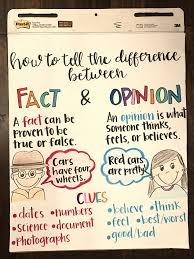 Post-it
how to tell the difference
between
FACT & OPINION
A fact can be
Proven to be
true or false.
An opinion is what
someone thinks,
feels, or believes.
Cars
have four
wheels.
Red cars
are pretty.
CLUES
•dates •numbers
•science •document
•photographs
•believe •think
•feel •best/worst
•good/bad